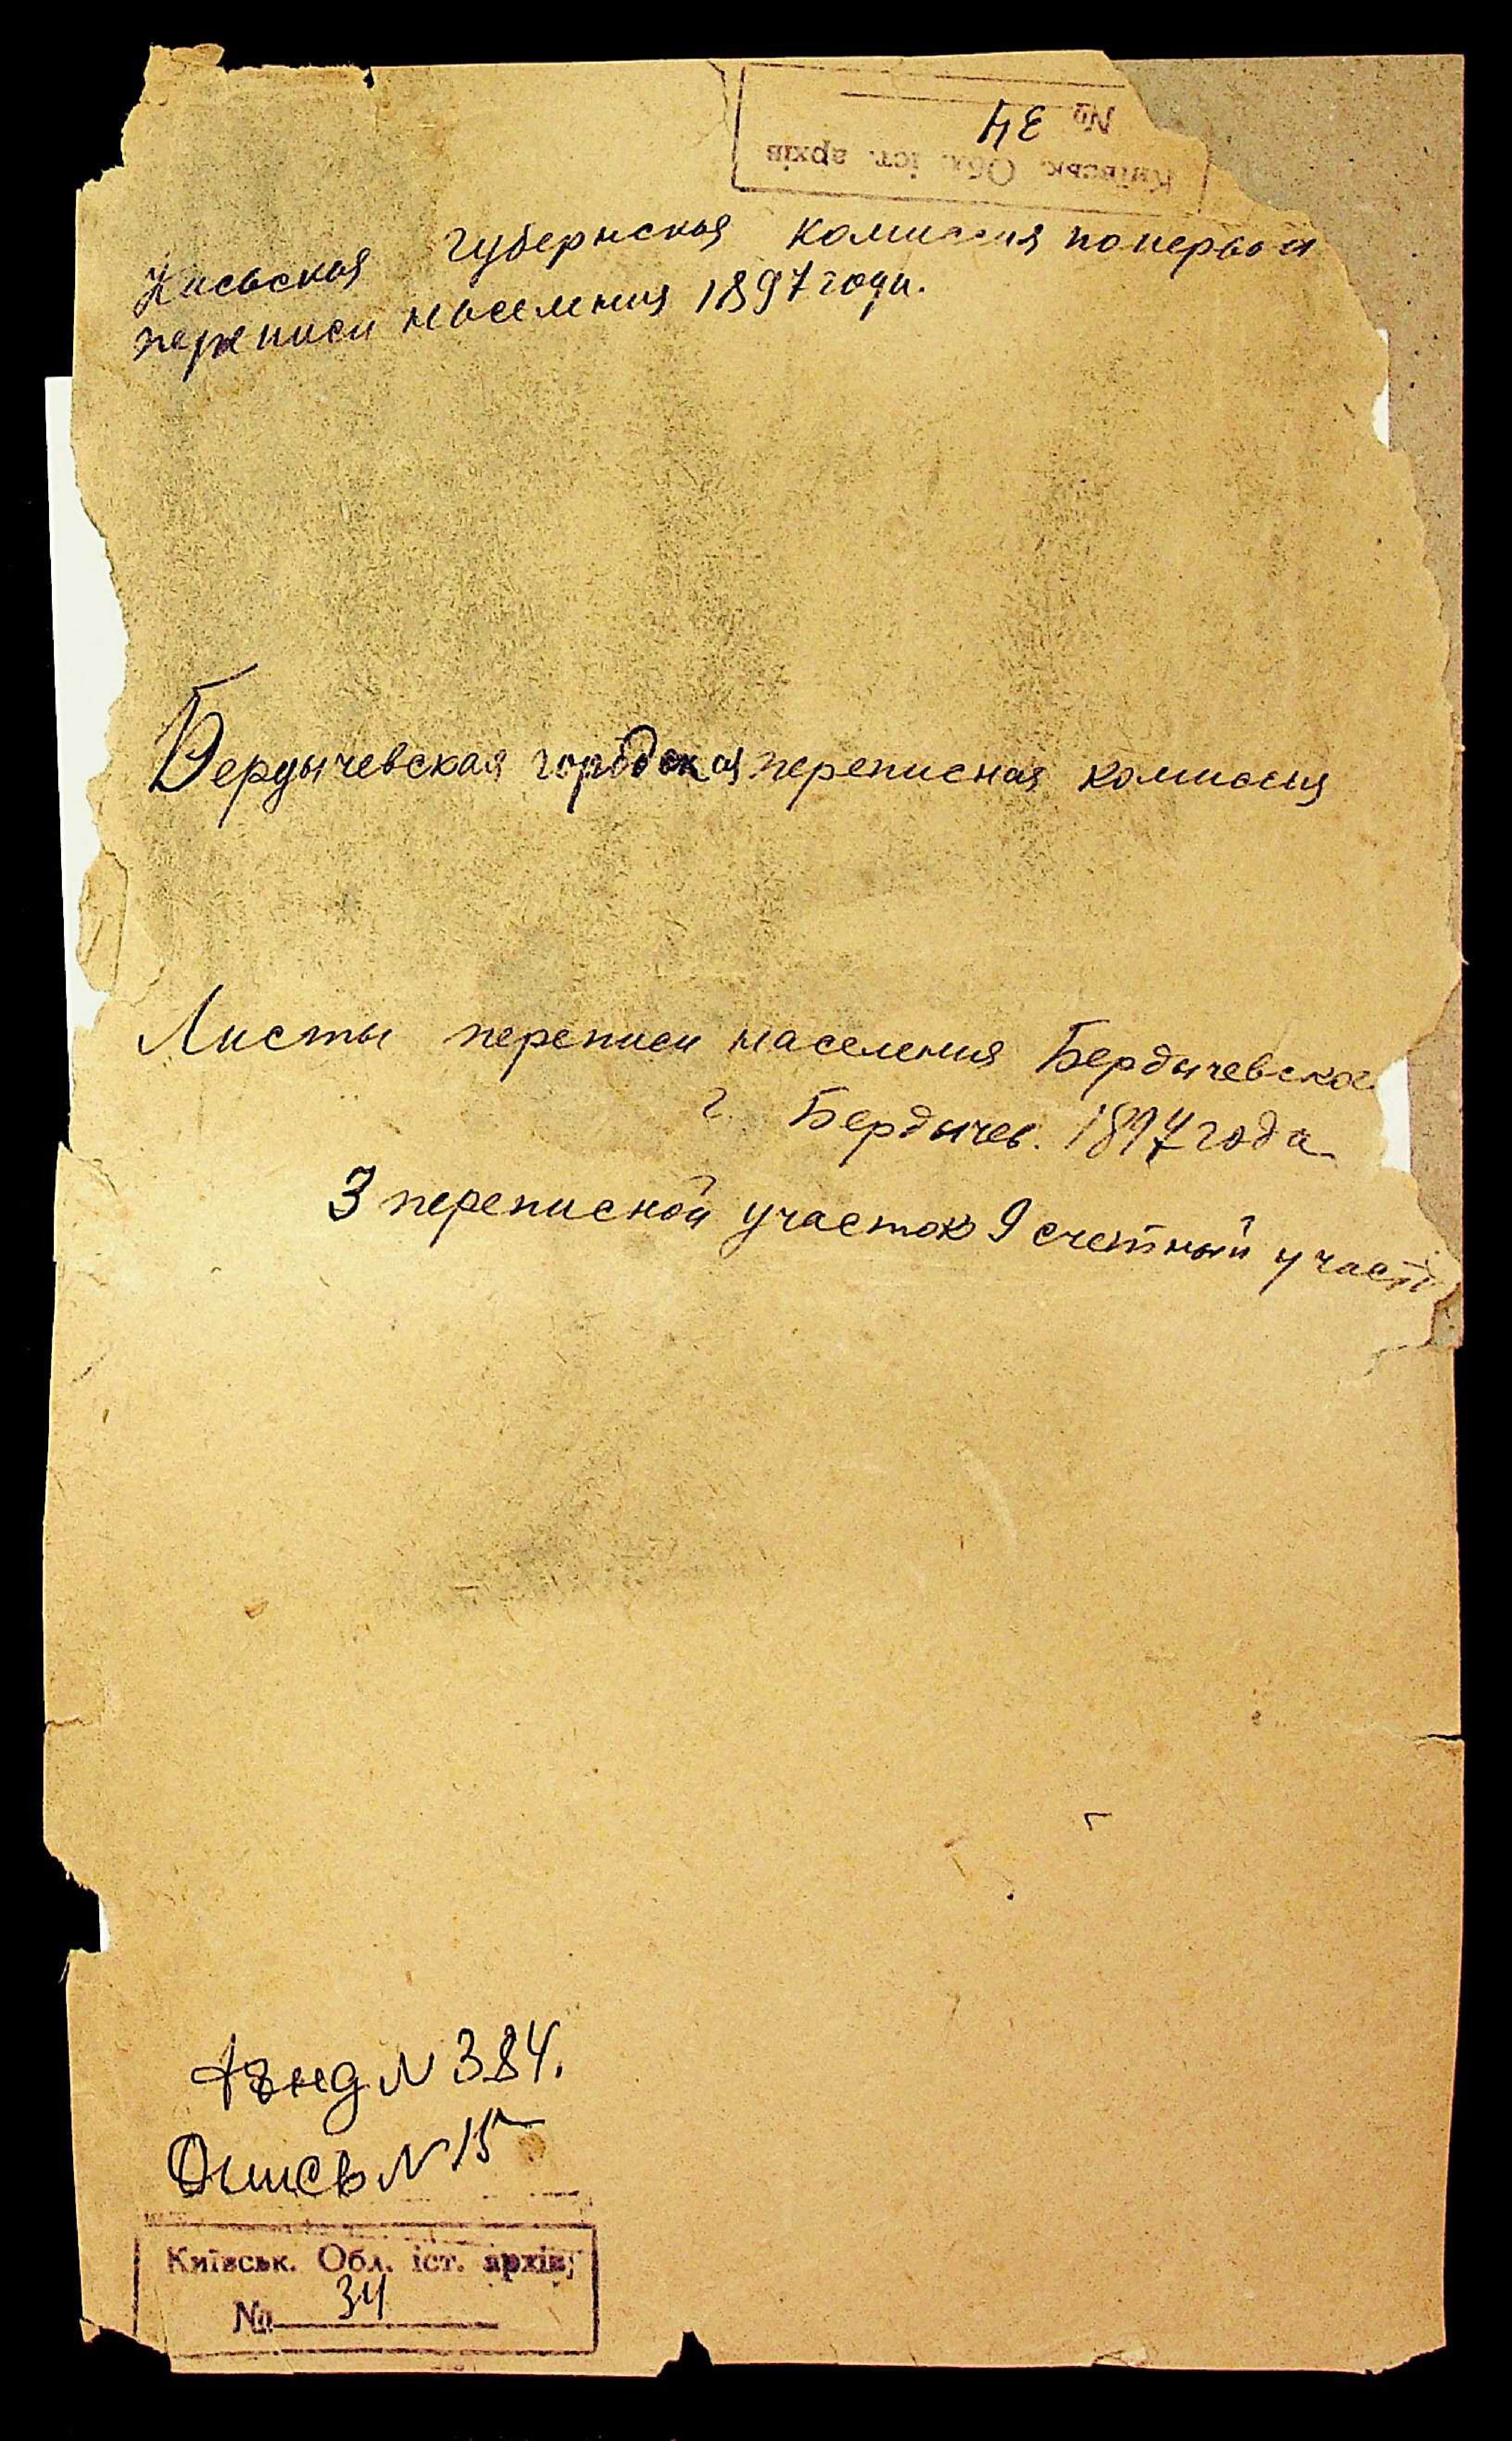 № 34
Київськ. Обл. іст. архів
Киевская губернская комиссия по первой
переписи населения 1897 года.
Бердычевская городская переписная комиссия
Листы переписи населения Бердычевског
г. Бердычев. 1897 года
3 переписной участок 9 счетный участ
Фонд N 384.
Опись N 15
Київськ. Обл. іст. архів
№ 34